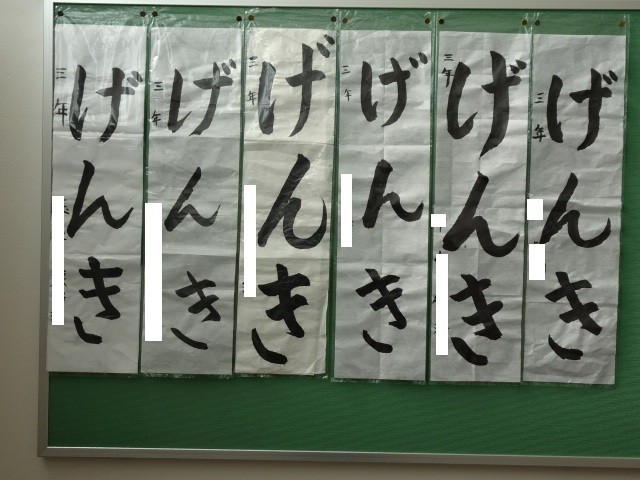 げんき
三年
げんき
三年
げんき
三年
げんき
三年
げんき
三年
げんき
三年